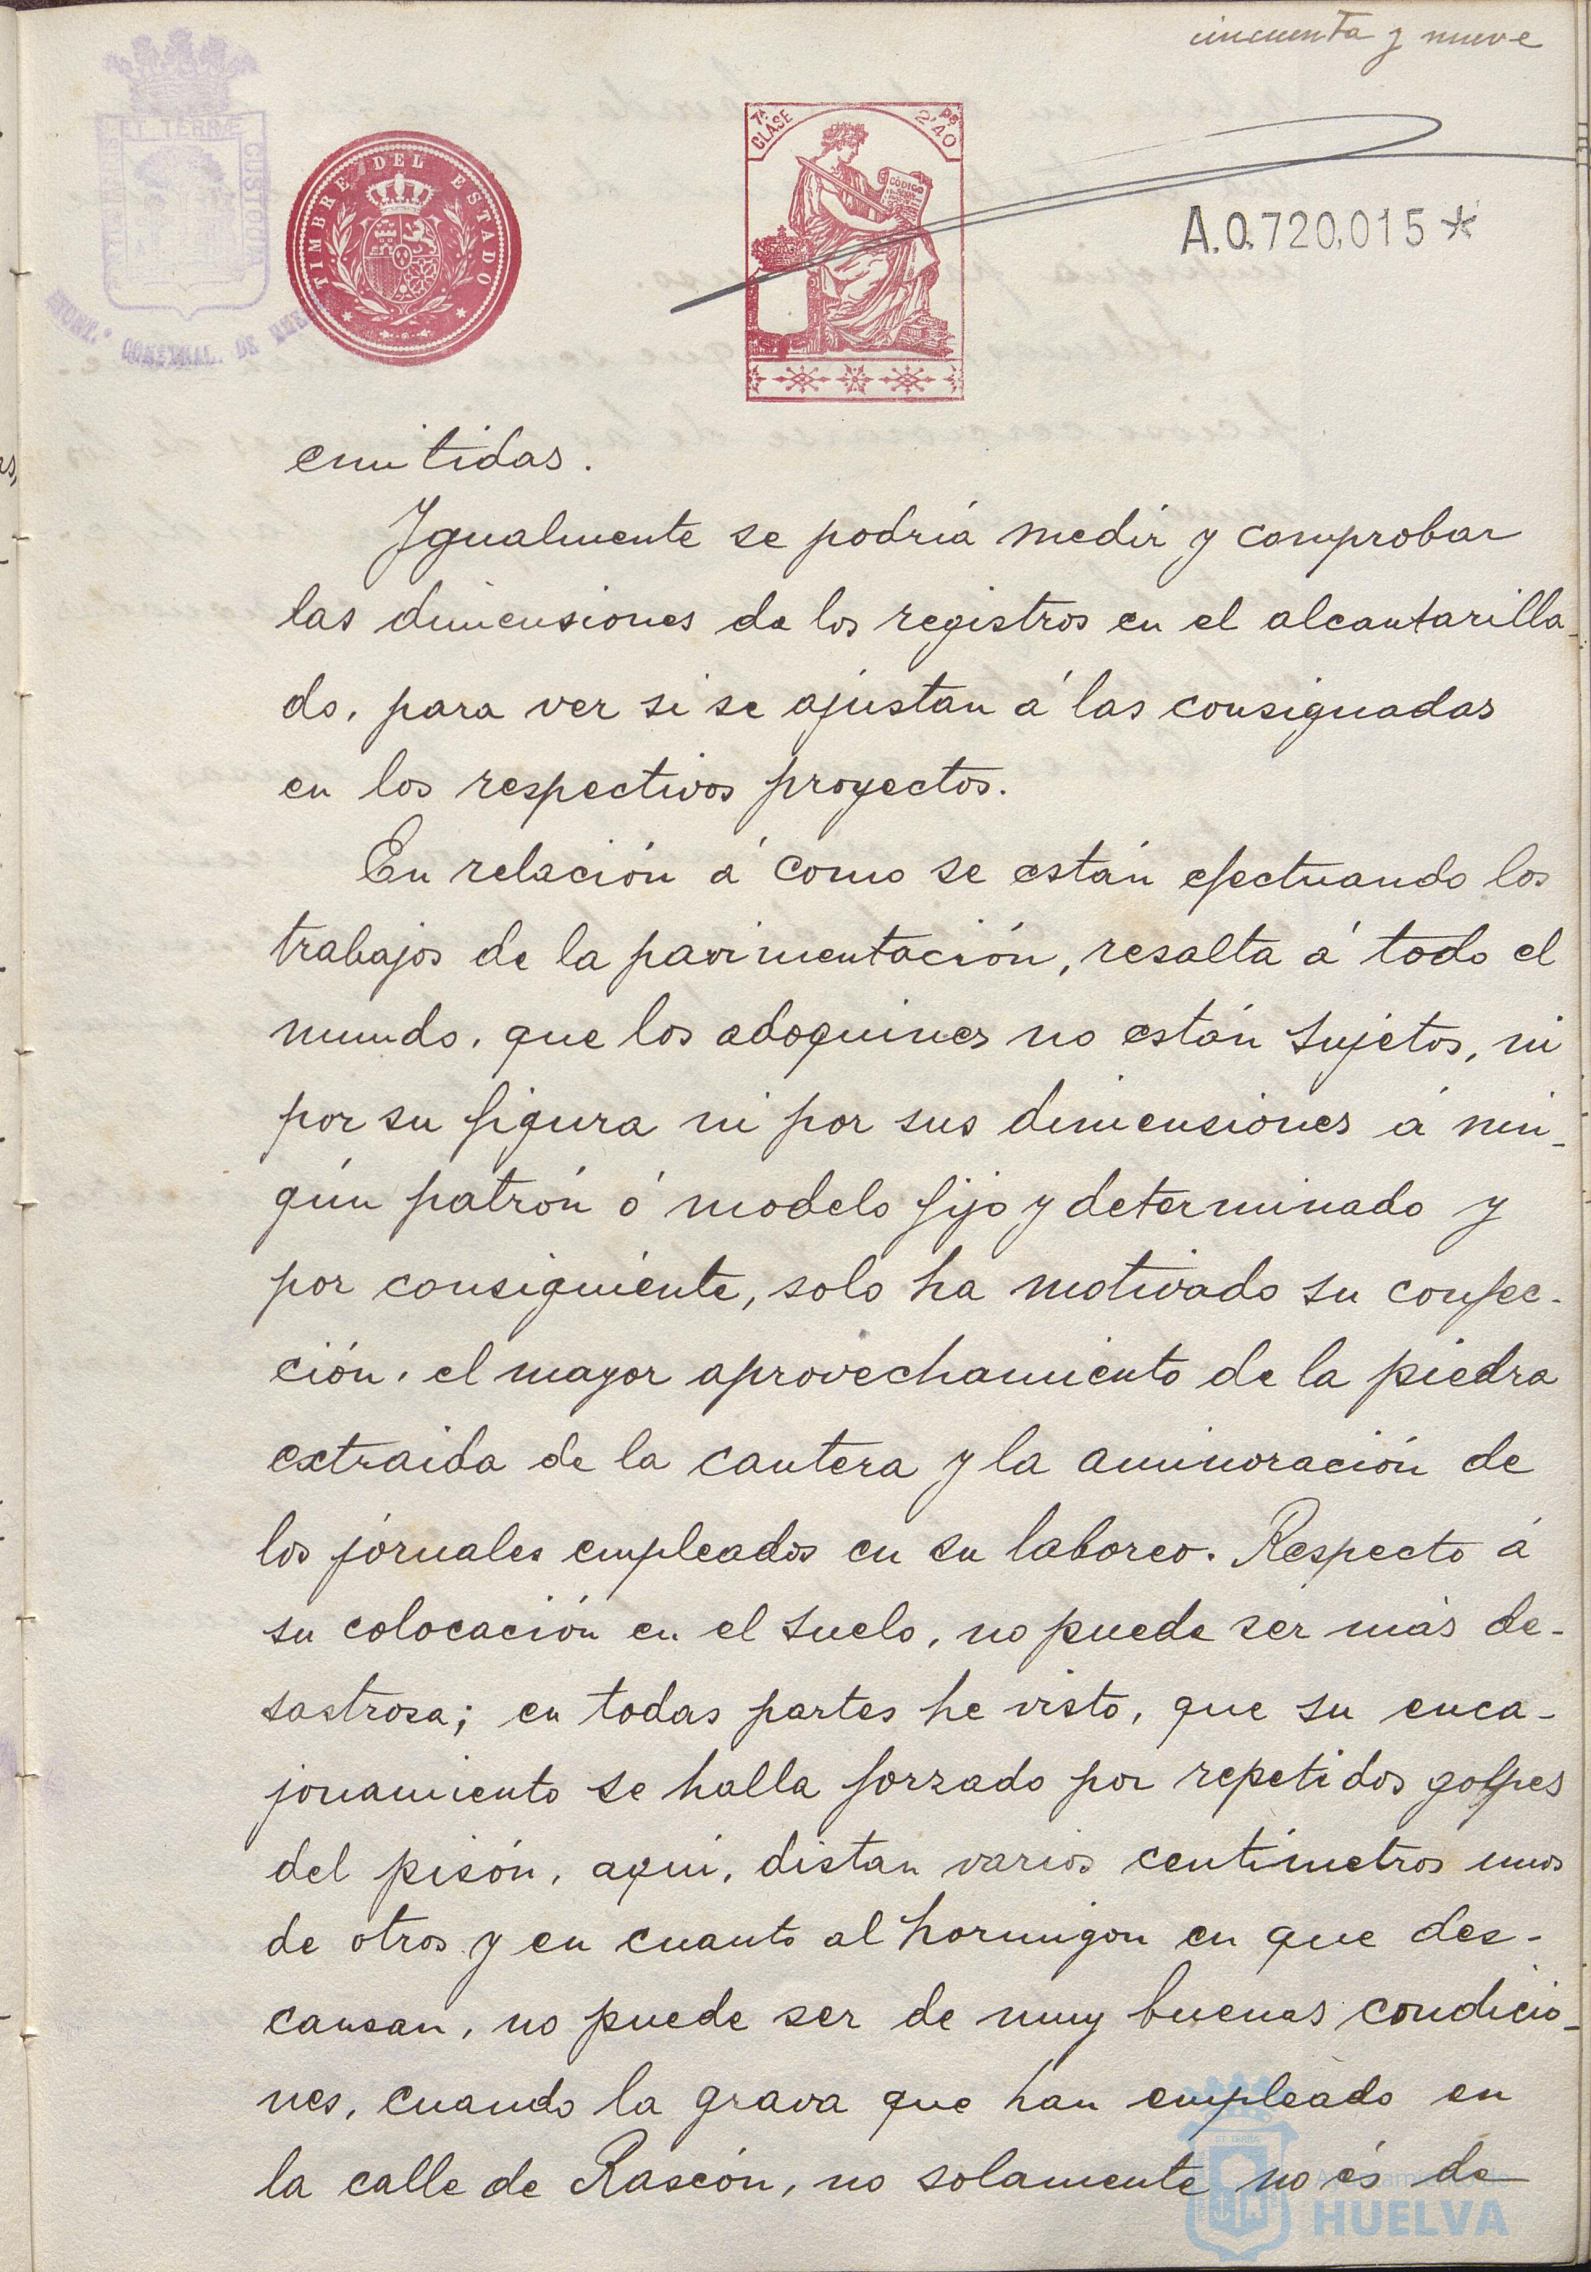 cincuenta y nueve
7ª CLASE
2'40 Ps
CÓDIGO
TIMBRE DEL ESTADO
A.0.720,015*
ET TERRÆ CUSTODIA
CONSTNAL. DE
emitidas.
Igualmente se podría medir y comprobar
las dimensiones de los registros en el alcantarilla-
do, para ver si se ajustan á las consignadas
en los respectivos proyectos.
En relación á como se están efectuando los
trabajos de la pavimentación, resalta á todo el
mundo, que los adoquines no están sujetos, ni
por su figura ni por sus dimensiones á nin-
gún patrón ó modelo fijo y determinado y
por consiguiente, solo ha motivado su confec-
ción, el mayor aprovechamiento de la piedra
extraida de la cantera y la aminoración de
los jornales empleados en su laboreo. Respecto á
su colocación en el suelo, no puede ser más de-
sastrosa; en todas partes he visto, que su enca-
jonamiento se halla forzado por repetidos golpes
del pisón, aquí, distan varios centímetros unos
de otros y en cuanto al hormigon en que des-
cansan, no puede ser de muy buenas condicio-
nes, cuando la grava que han empleado en
la calle de Rascón, no solamente no és de
Ayuntamiento de
HUELVA